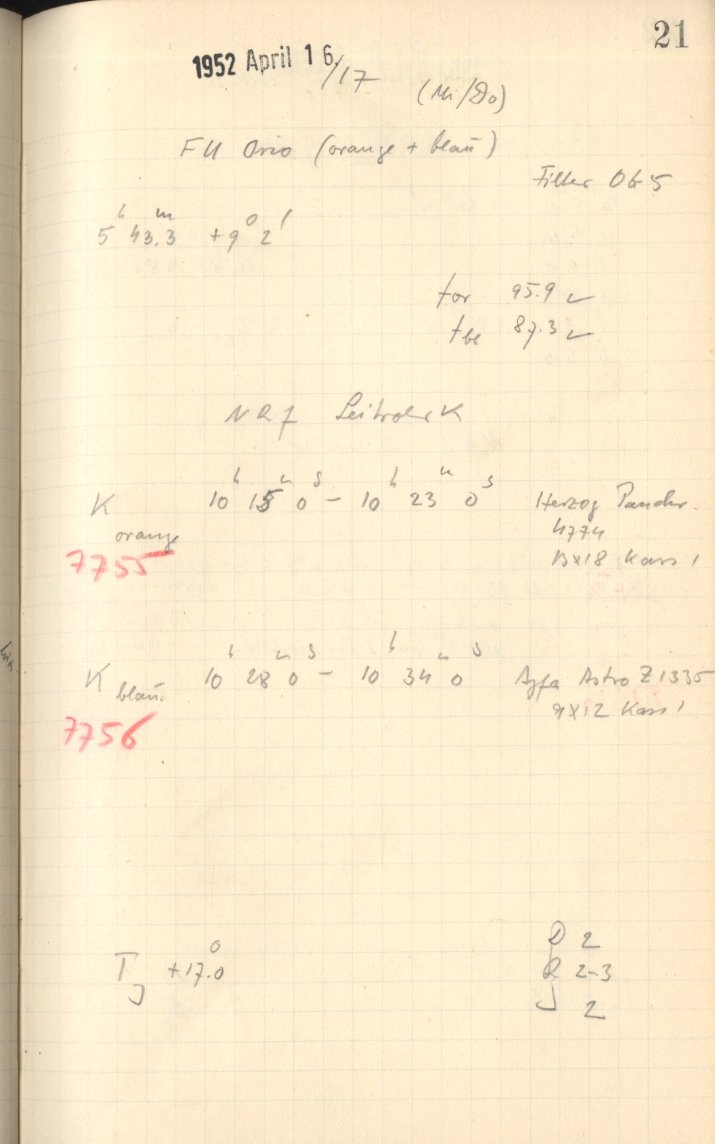 21
1952 April 16/17 (Mi/Do)
FU Orio (orange + blau)
Filter OG5
5h 43.3m +9° 2'
for 95.9
fbl 87.3
NR 7
K orange 10h 15m 0s - 10h 23m 0s Herzog Panchr.
7755 4774
13x18 Kass 1
K blau. 10h 28m 0s - 10h 34m 0s Agfa Astro Z1335
7756 9x12 Kass 1
D 2
TJ +17.0° R 2-3
J 2